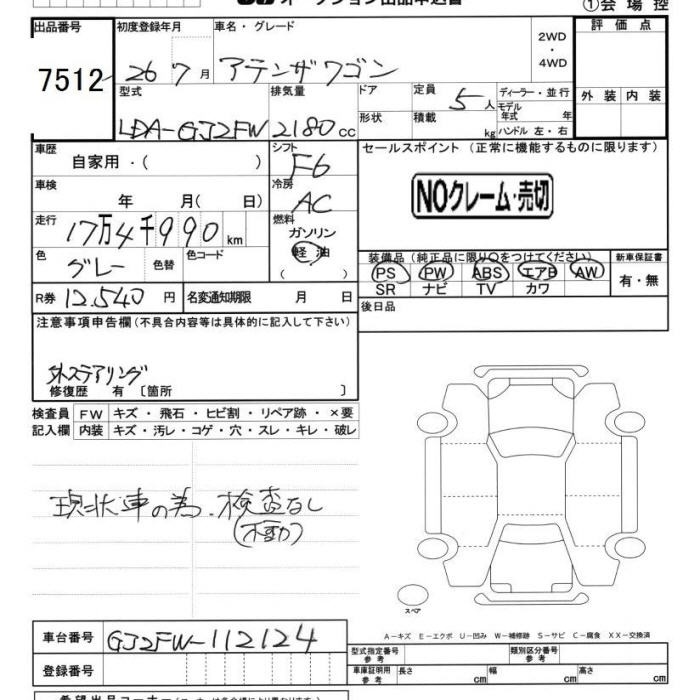 オークション出品申込書
①会場控
出品番号 7512
初度登録年月 26 7月
車名・グレード アテンザワゴン
2WD
・
4WD
評価点
外装 内装
型式 LDA-GJ2FW
排気量 2180cc
ドア
形状
定員 5人
積載 kg
ディーラー・並行
モデル年式 年
ハンドル 左・右
車歴 自家用・( )
シフト F6
セールスポイント(正常に機能するものに限ります)
車検 年 月( 日)
冷房 AC
NOクレーム・売切
走行 17万4千990km
燃料 ガソリン
軽油
( )
色 グレー 色替 色コード
装備品(純正品に限り○をつけてください) 新車保証書
PS PW ABS エアB AW 有・無
SR ナビ TV カワ
R券 12,540円 名変通知期限 月 日
後日品
注意事項申告欄(不具合内容等は具体的に記入して下さい)
外ステアリング
修復歴 有〔箇所 〕
検査員 FW キズ・飛石・ヒビ割・リペア跡・×要
記入欄 内装 キズ・汚レ・コゲ・穴・スレ・キレ・破レ
現状車の為、検査なし
(不動)
スペア
A-キズ E-エクボ U-凹み W-補修跡 S-サビ C-腐食 XX-交換済
車台番号 GJ2FW-112124
登録番号
型式指定番号 参考 類別区分番号 参考
車庫証明用 参考 長さ cm 幅 cm 高さ cm